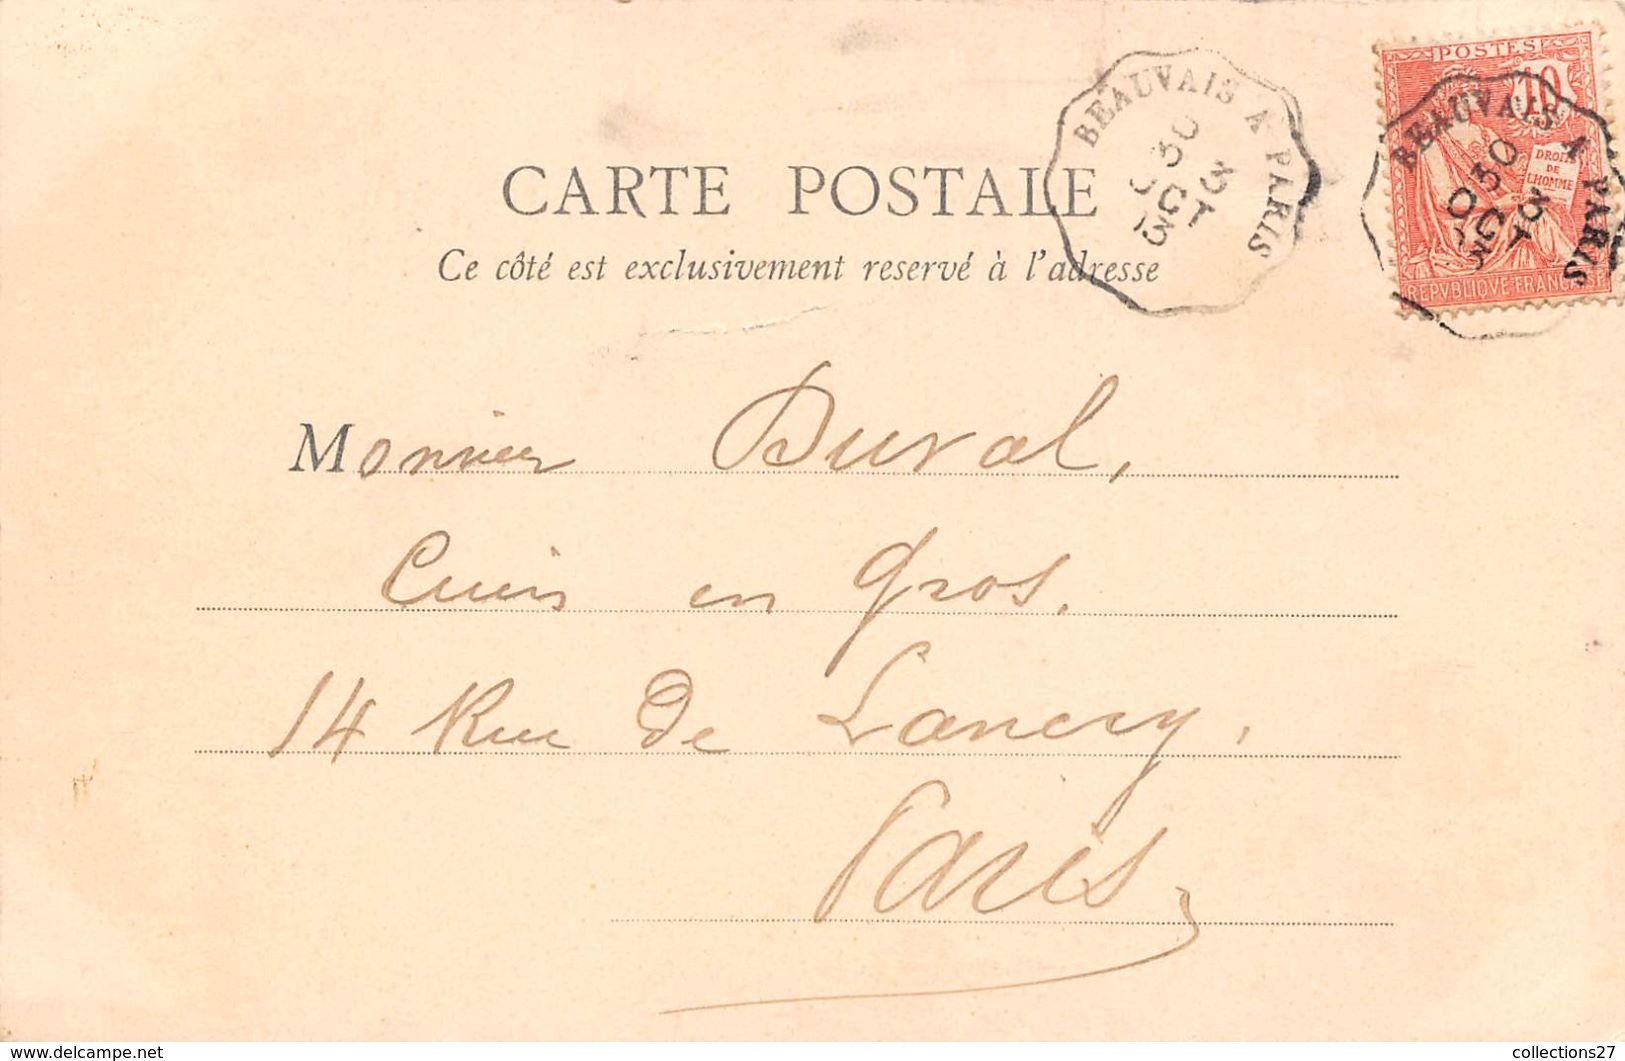 CARTE POSTALE
Ce côté est exclusivement reservé à l'adresse
BEAUVAIS A PARIS
30
OCT
03
POSTES
10
DROITS
DE
L'HOMME
REPVBLIQVE FRANCAISE
BEAUVAIS A PARIS
30
OCT
03
Monsieur Duval,
Cuirs en Gros.
14 Rue De Lancry,
Paris,
www.delcampe.net
collections27